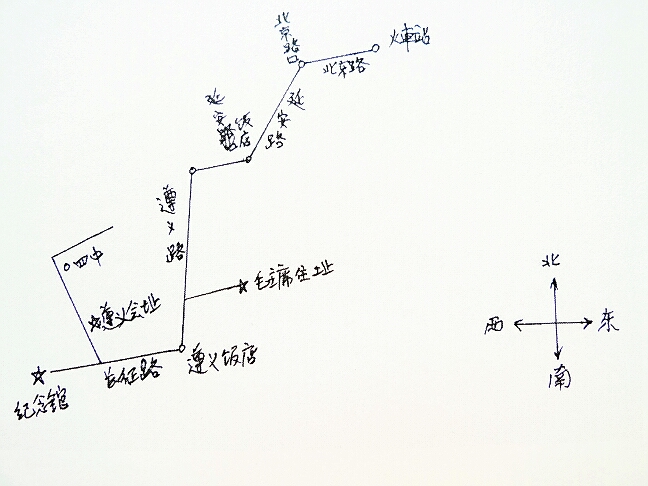 北京路口
火車站
北京路
延安路
延安
饭店
遵义路
四中
毛主席住址
遵义会址
遵义饭店
长征路
纪念馆
北
西
东
南